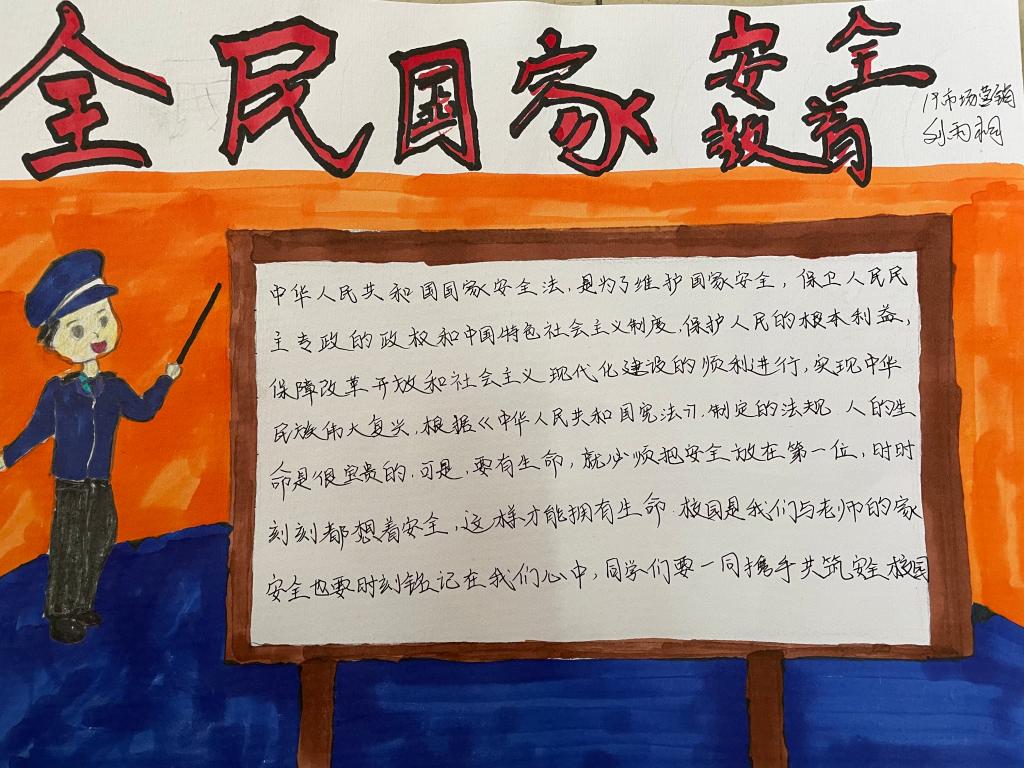 全民国家安全
教育
19市场营销
刘雨桐
中华人民共和国国家安全法,是为了维护国家安全,保卫人民民
主专政的政权和中国特色社会主义制度,保护人民的根本利益,
保障改革开放和社会主义现代化建设的顺利进行,实现中华
民族伟大复兴,根据《中华人民共和国宪法》,制定的法规 人的生
命是很宝贵的,可是,要有生命,就必须把安全放在第一位,时时
刻刻都想着安全,这样才能拥有生命.校园是我们与老师的家
安全也要时刻铭记在我们心中,同学们要一同携手共筑安全校园